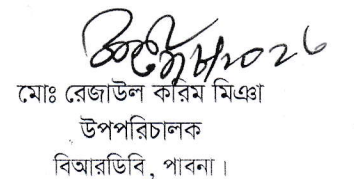 মোঃ রেজাউল করিম মিঞা
উপপরিচালক
বিআরডিবি, পাবনা।